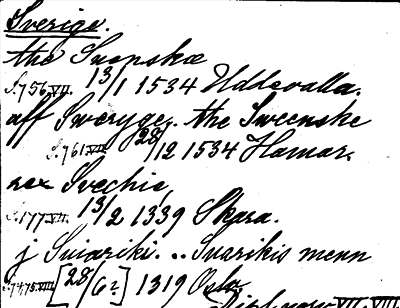 Sverige.
the Suenskæ
S. 756 VII. 13/1 1534 Uddevalla.
aff Sweryge, the Sweenske
S. 761 VII. 28/12 1534 Hamar.
rex Svechie,
S. 177 VII. 13/2 1339 Skara.
j Suiariki. .. Suarikis menn
[28/6?] 1319 Oslo.
VII-VIII